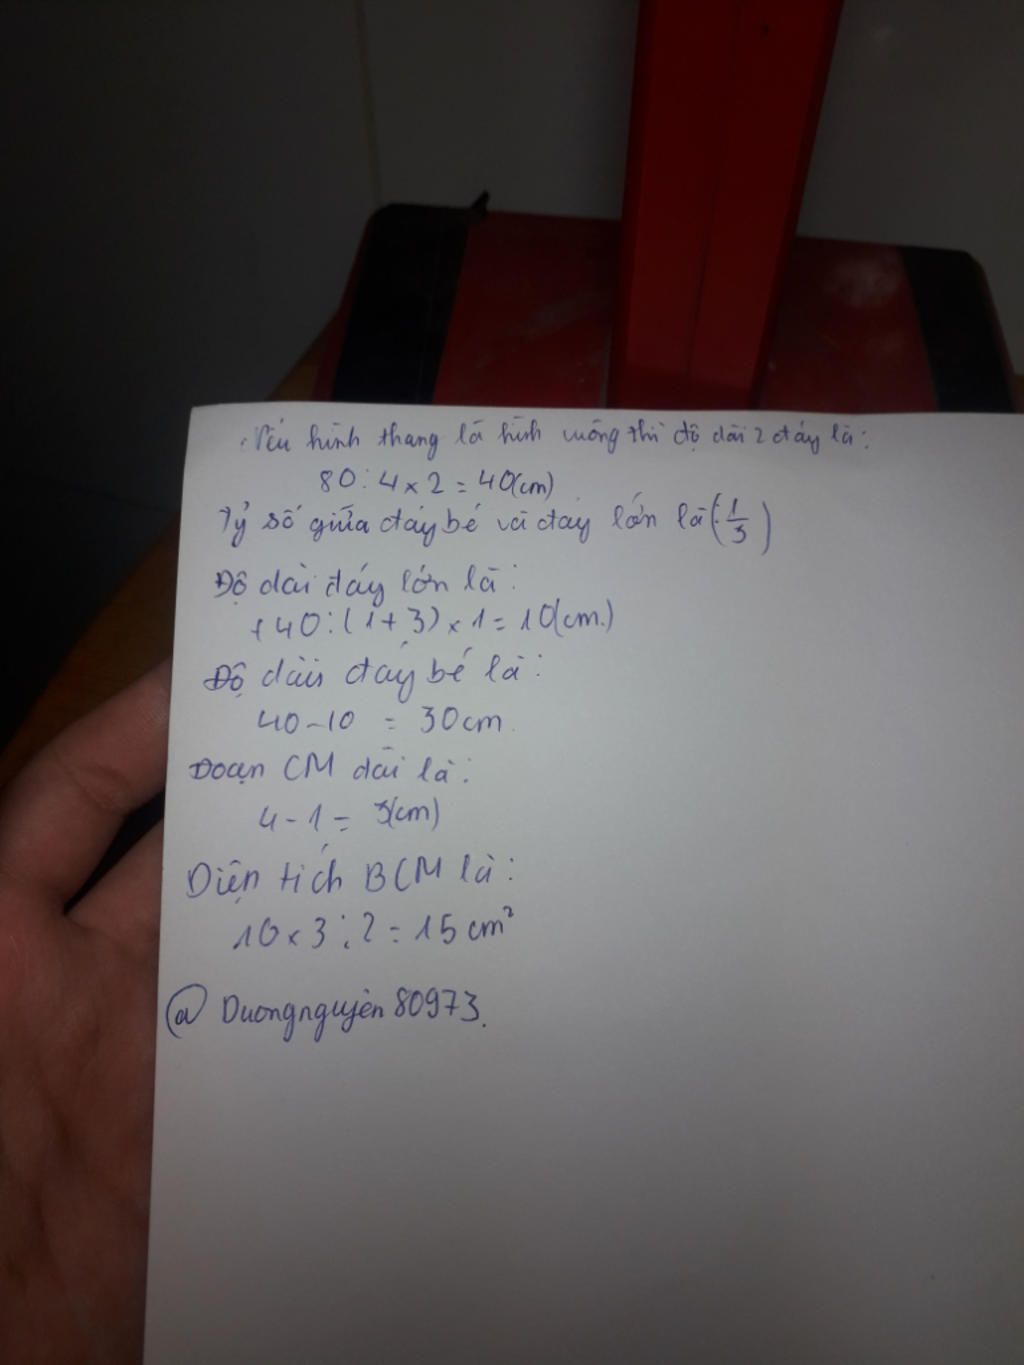 Nếu hình thang là hình vuông thì độ dài 2 đáy là:
80:4×2=40(cm)
Tỷ số giữa đáy bé và đáy lớn là (1/3)
Độ dài đáy lớn là:
+40:(1+3)×1=10(cm.)
Độ dài đáy bé là:
40-10 = 30cm.
Đoạn CM dài là:
4-1= 3(cm)
Diện tích BCM là:
10×3:2=15cm²
@ Duongnguyên80973.